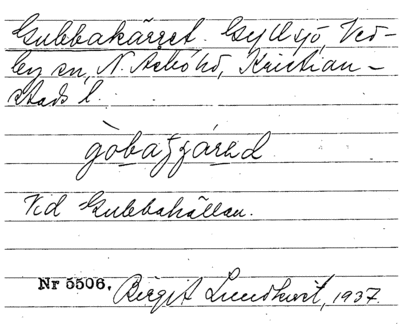 Gubbakärret. Gyllsjö, Ved-
by sn, N. Åsbo hd, Kristian-
stads l.
Vid Gubbakällan.
Nr 5506. Birgit Lundkvist, 1937.